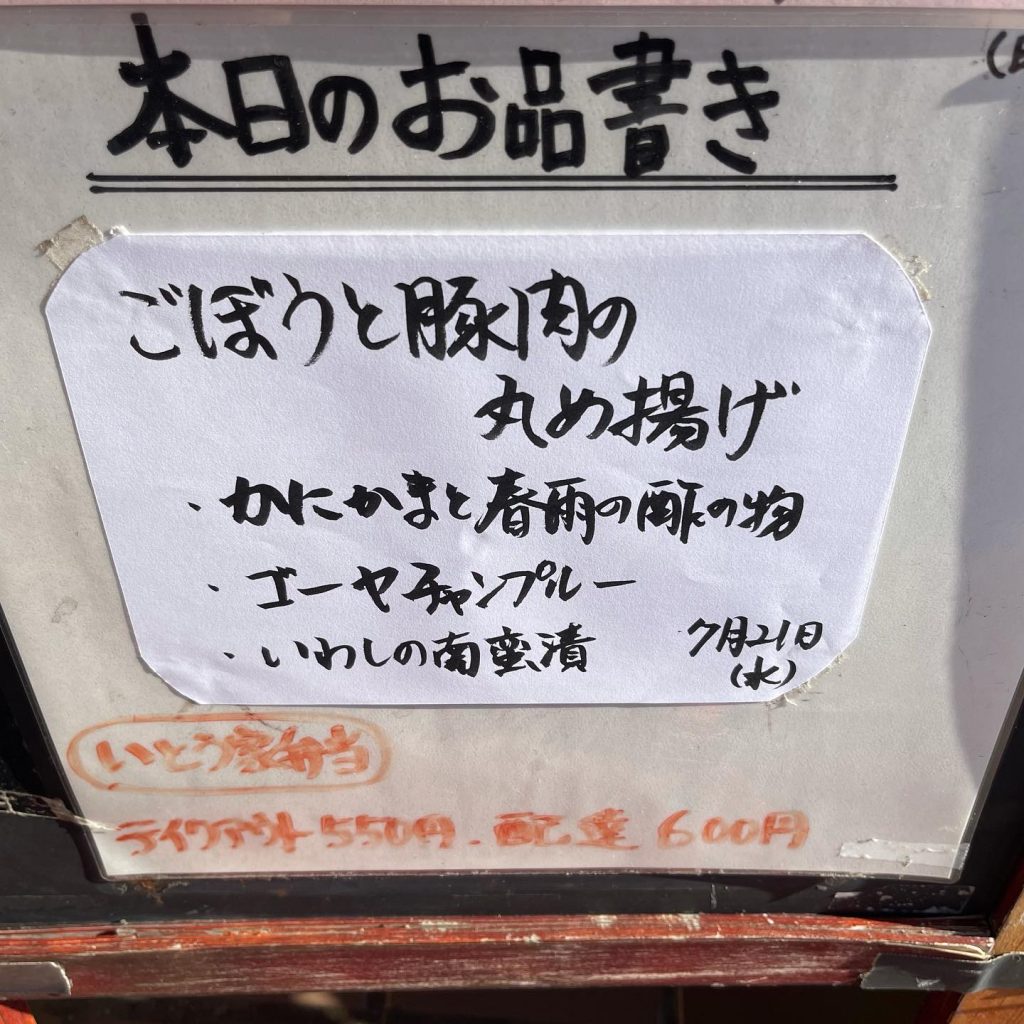 本日のお品書き
ごぼうと豚肉の
丸め揚げ
・かにかまと春雨の酢の物
・ゴーヤチャンプルー
・いわしの南蛮漬
7月21日
(水)
いとう家弁当
テイクアウト 550円. 配達 600円